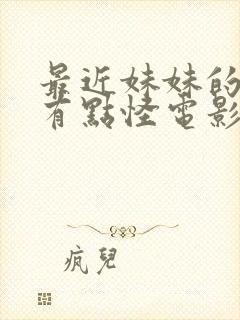 最近妹妹的
有點怪電影
疯兒